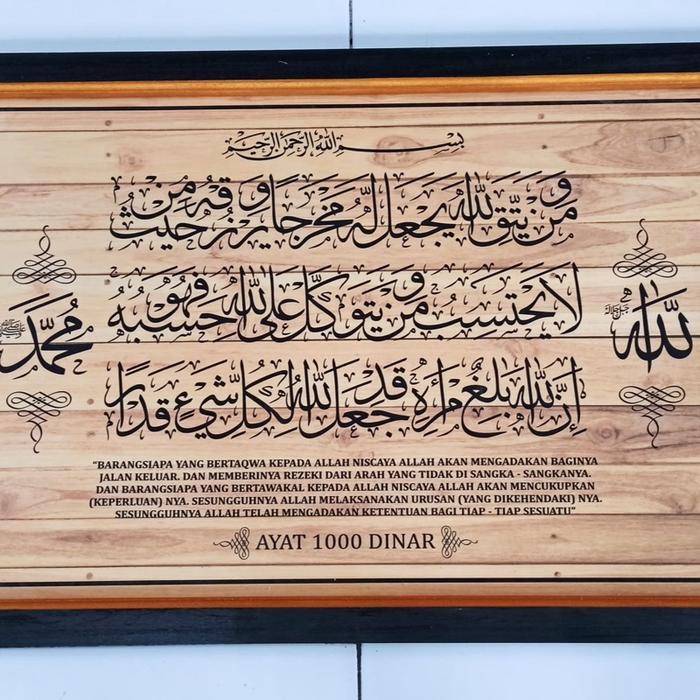 بسم الله الرحمن الرحيم
ومن يتق الله يجعل له مخرجا ويرزقه من حيث
لا يحتسب ومن يتوكل على الله فهو حسبه
إن الله بلغ أمره قد جعل الله لكل شيء قدرا
الله
محمد
"BARANGSIAPA YANG BERTAQWA KEPADA ALLAH NISCAYA ALLAH AKAN MENGADAKAN BAGINYA
JALAN KELUAR. DAN MEMBERINYA REZEKI DARI ARAH YANG TIDAK DI SANGKA - SANGKANYA.
DAN BARANGSIAPA YANG BERTAWAKAL KEPADA ALLAH NISCAYA ALLAH AKAN MENCUKUPKAN
(KEPERLUAN) NYA. SESUNGGUHNYA ALLAH MELAKSANAKAN URUSAN (YANG DIKEHENDAKI) NYA.
SESUNGGUHNYA ALLAH TELAH MENGADAKAN KETENTUAN BAGI TIAP - TIAP SESUATU"
AYAT 1000 DINAR